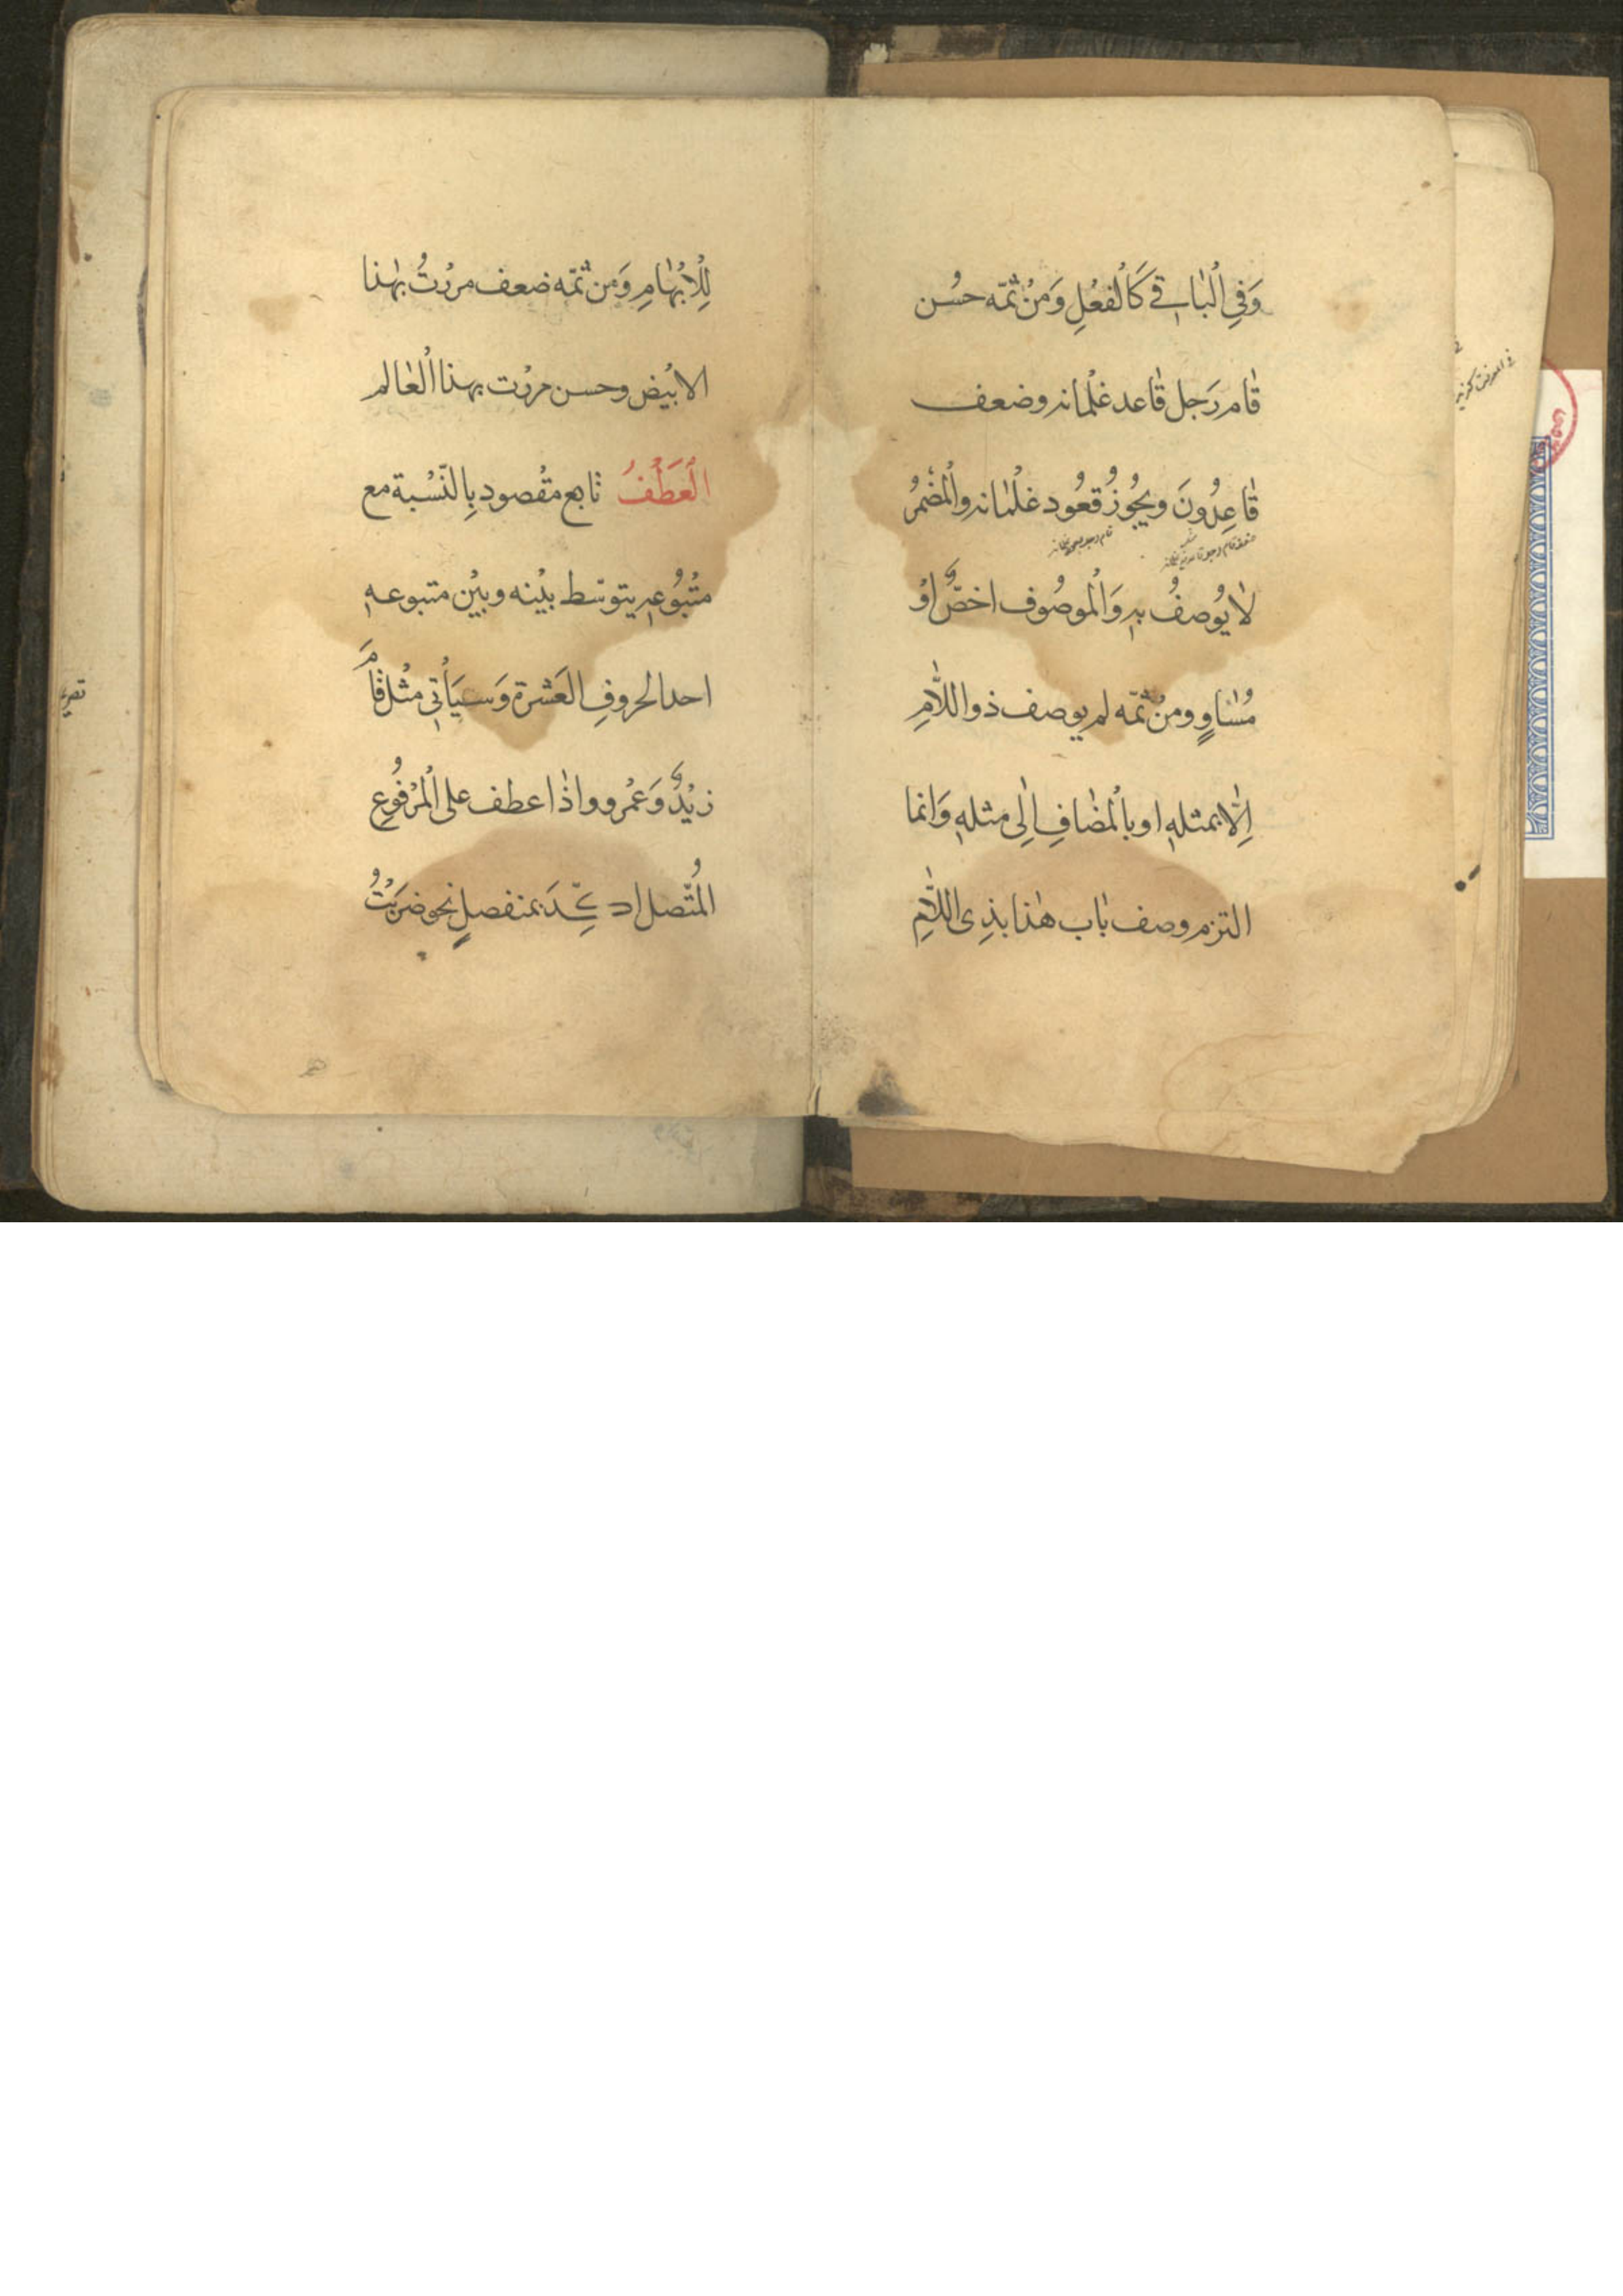 وَفِي الْبَاقِي كَالْفِعْلِ وَمِنْ ثَمَّه حسُن
قٰام رَجل قٰاعد غلْمانه وضعف
قٰاعِدُونَ ويجُوزُ قعُود غلْمٰانه والْمُضْمَرُ
لٰا يُوصفُ بهِ وَالْموصُوف اخصُّ اوْ
مُسٰاوٍ ومنْ ثمّه لم يوصف ذو اللّٰامِ
اِلّٰا بمثلهِ او بالْمضٰافِ اِلٰى مثلهِ وَانما
التزم وصف بٰاب هٰذا بذِى اللّٰامِ
لِلْاِبْهٰامِ وَمن ثمّه ضعف مررْتُ بهٰذا
الابْيض وحسن مررْت بهذا الْعٰالم
الْعَطْفُ تابع مقْصود بِالنّسْبة مع
متْبُوُعهِ يتوسّط بيْنه وبيْن متبوعهِ
احد الحروفِ العَشرة وَسيَأْتِى مثْل قٰامَ
زيْدٌ وَعمْرو واذٰا عطف على الْمرْفُوعِ
المُتّصل اكّدَ بمنفصلٍ نحو ضرَبْتُ